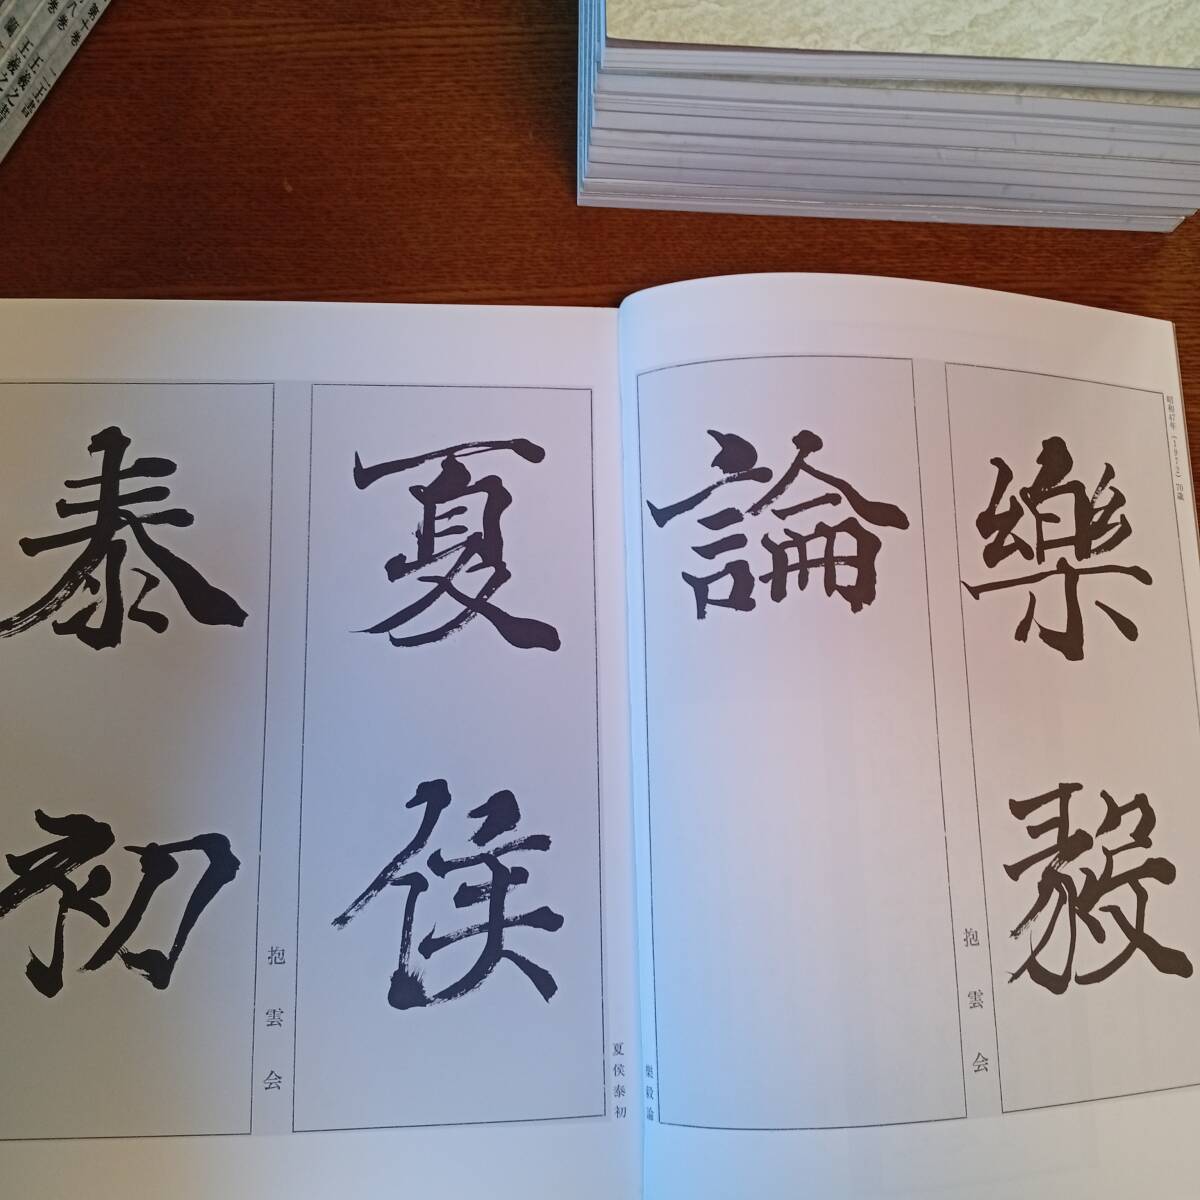 昭和47年（1972）70歳
樂毅
抱雲会
論
樂毅論
夏侯泰初
夏侯
抱雲会
泰初